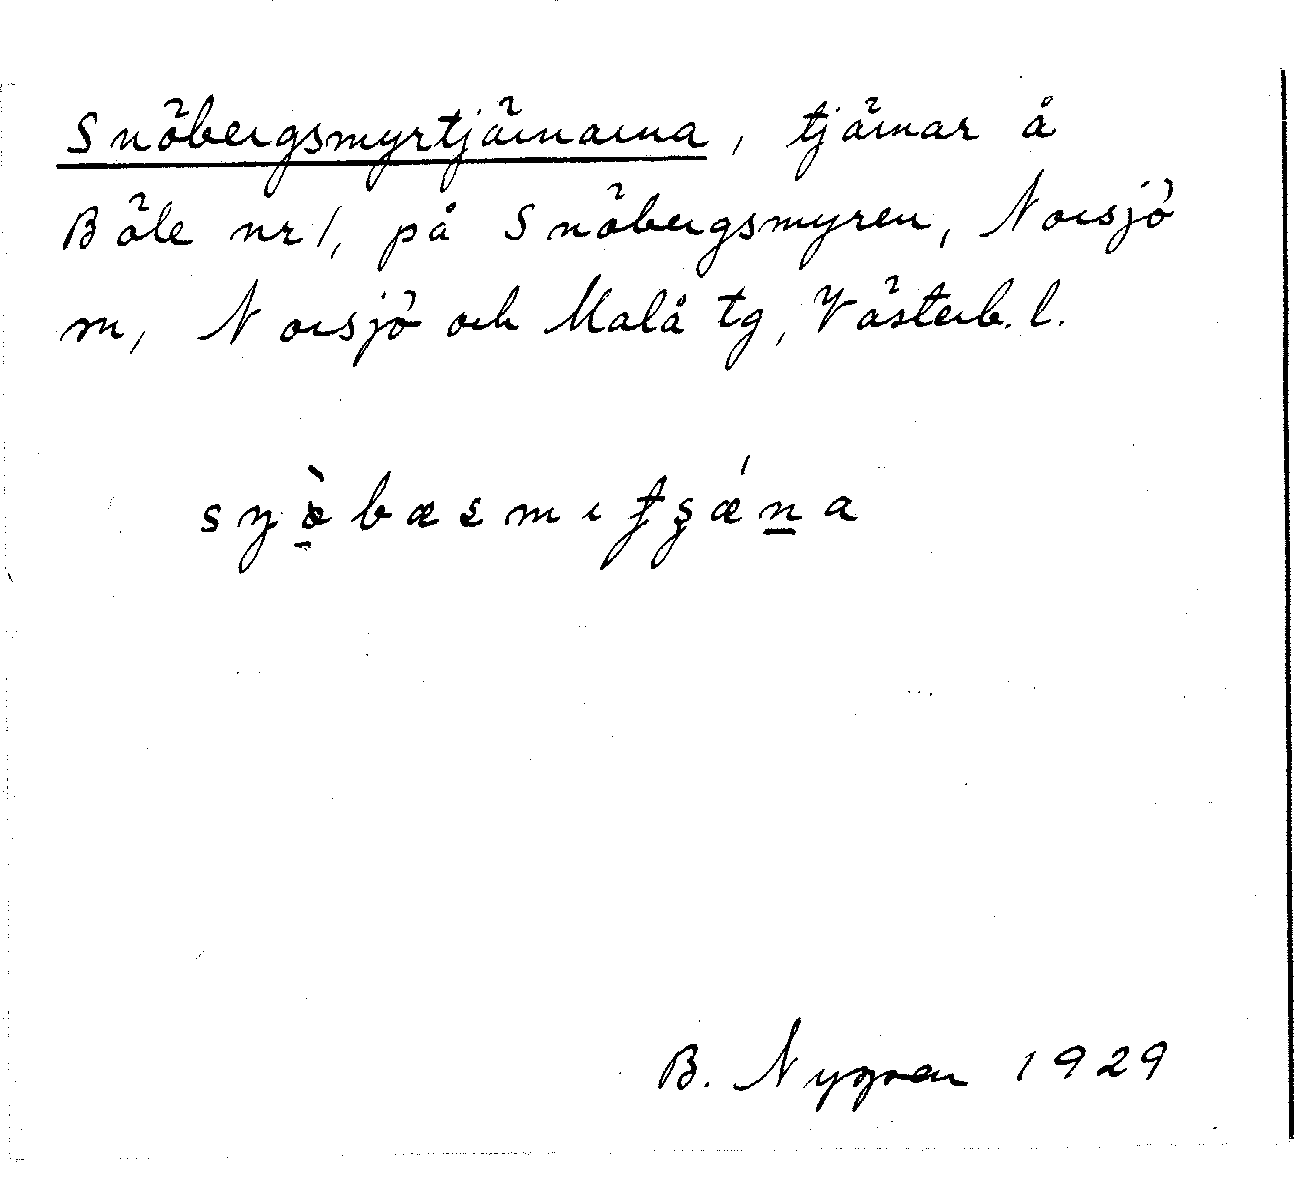 Snöbergsmyrtjärnarna, tjärnar å
Böle nr 1, på Snöbergsmyren, Norsjö
sn, Norsjö och Malå tg, Västerb. l.
B. Nygren 1929